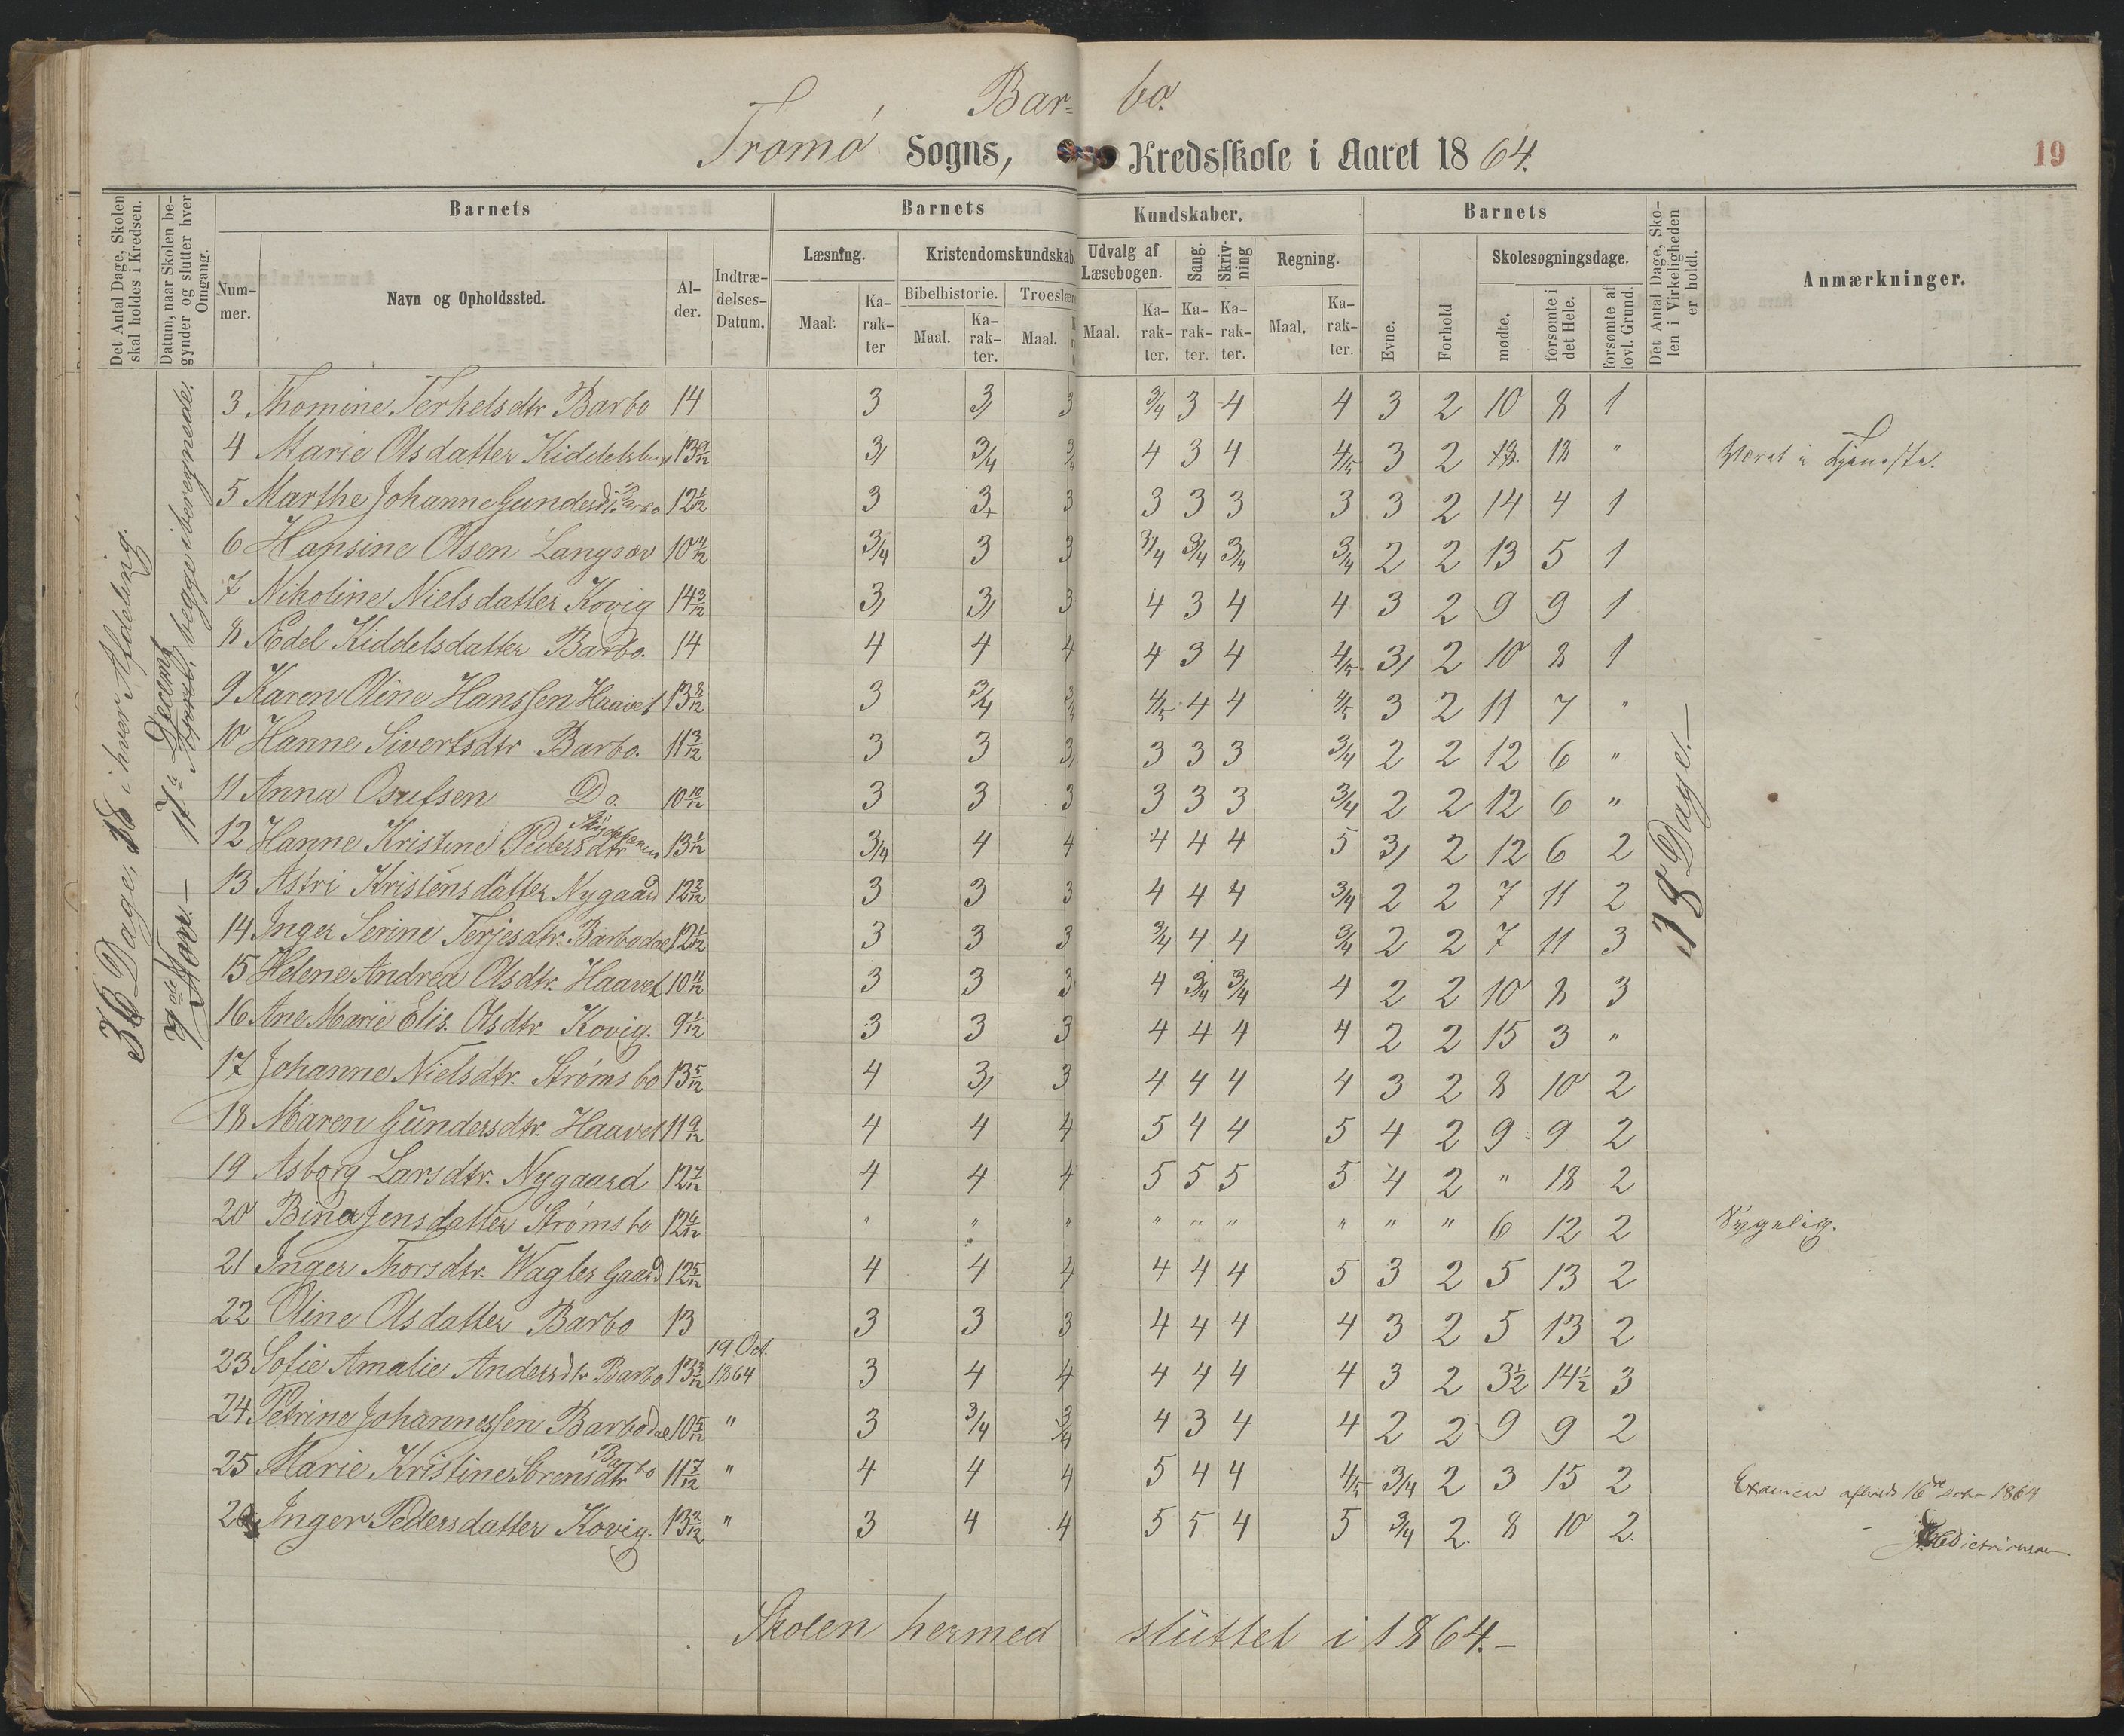 Bar- bo.
Tromø Sogns, Kredsskole i Aaret 1864.
19
Det Antal Dage, Skolen skal holdes i Kredsen.
Datum, naar Skolen begynder og slutter hver Omgang.
Barnets
Nummer.
Navn og Opholdssted.
Alder.
Indtrædelses-Datum.
Barnets Kundskaber.
Læsning.
Maal.
Karakter
Kristendomskundskab.
Bibelhistorie.
Maal.
Karakter.
Troeslære
Maal.
Udvalg af Læsebogen.
Maal.
Karakter.
Sang.
Karakter.
Skrivning
Karakter.
Regning.
Maal.
Karakter.
Barnets
Evne.
Forhold
Skolesøgningsdage.
mødte.
forsømte i det Hele.
forsømte af lovl. Grund.
Det Antal Dage, Skolen i Virkeligheden er holdt.
Anmærkninger.
36 Dage, 18 i hver Afdeling.
begge iberegnede.
18 Dage.-
3 Thomine Terkelsdtr Barbo 14 3 3/ 3 3/4 3 4 4 3 2 10 8 1
4 Marie Olsdatter 13 9/12 3/ 3/4 4 3 4 4/5 3 2 18 " Været i Tjeneste.
5 Marthe Johanne Gundersdtr Barbo 12 1/12 3 3+ 3 3 3 3 3 3 2 14 4 1
6 Hansine Olsen Langsæv 10 3/4 3 3 3/4 3/4 3/4 3/4 2 2 13 5 1
7 Nikoline Nielsdatter Kovig 14 3/12 3/ 3/ 3 4 3 4 4 3 2 9 9 1
8 Ædel Kiddelsdatter Barbo. 14 4 4 4 4 3 4 4/5 3/ 2 10 8 1
9 Karen Oline Hanssen Haavet 13 8/12 3 3/4 3/4 4/5 4 4 4/5 3 2 11 7 "
10 Hanne Sivertsdtr Barbo. 11 3/12 3 3 3/ 3 3 3 3/4 2 2 12 6 "
11 Anna Osufsen Do. 10 10/12 3 3 3 3 3 3 3/4 2 2 12 6 "
12 Hanne Kristine Pedersdtr 13 1/12 3/4 4 4 4 4 4 5 3/ 2 12 6 2
13 Astri Kristensdatter Nygaard 12 2/12 3 3 3 4 4 4 3/4 2 2 7 11 2
14 Inger Serine Terjesdtr. Barbodal 12 1/12 3 3 3 3/4 4 4 3/4 2 2 7 11 3
15 Helene Andrea Olsdtr. Haavet 10 11/12 3 3 3 4 3/4 3/4 4 2 2 10 8 3
16 Ane Marie Elis. Olsdtr. Kovig. 9 1/12 3 3 3 4 4 4 4 2 2 15 3 "
17 Johanne Nielsdtr. Strømsbo 13 5/12 4 3/ 3 4 4 4 4 3 2 8 10 2
18 Maren Gundersdtr. Haavet 11 9/12 4 4 4 5 4 4 5 4 2 9 9 2
19 Asborg Larsdtr. Nygaard 12 7/12 4 4 4 5 5 5 5 4 2 " 18 2
20 Bina Jensdatter Strømsbo 12 " " " " " " " " " 6 12 2 Sygelig.
21 Inger Thorsdtr. Wagles Gaard 12 5/12 4 4 4 4 4 4 5 3 2 5 13 2
22 Oline Olsdatter Barbo 13 3 3 3 4 4 4 4 3 2 5 13 2
23 Sofie Amalie Andersdtr Barbo 13 3/12 19 Oct. 1864 3 4 4 4 4 4 4 3 2 3½ 14½ 3
24 Petrine Johannessen Barbodal 10 5/12 " 3 3/4 3/4 4 3 4 4 2 2 9 9 2
25 Marie Kristine Sørensdtr Barbo 11 7/12 " 4 4 4 5 4 4 4/5 3/4 2 3 15 2
26 Inger Pedersdatter Kovig. 13 2/12 " 3 4 4 5 5 4 5 3/4 2 8 10 2.
Examen afholdt 16de Decbr 1864
Skolen hermed sluttet i 1864.-